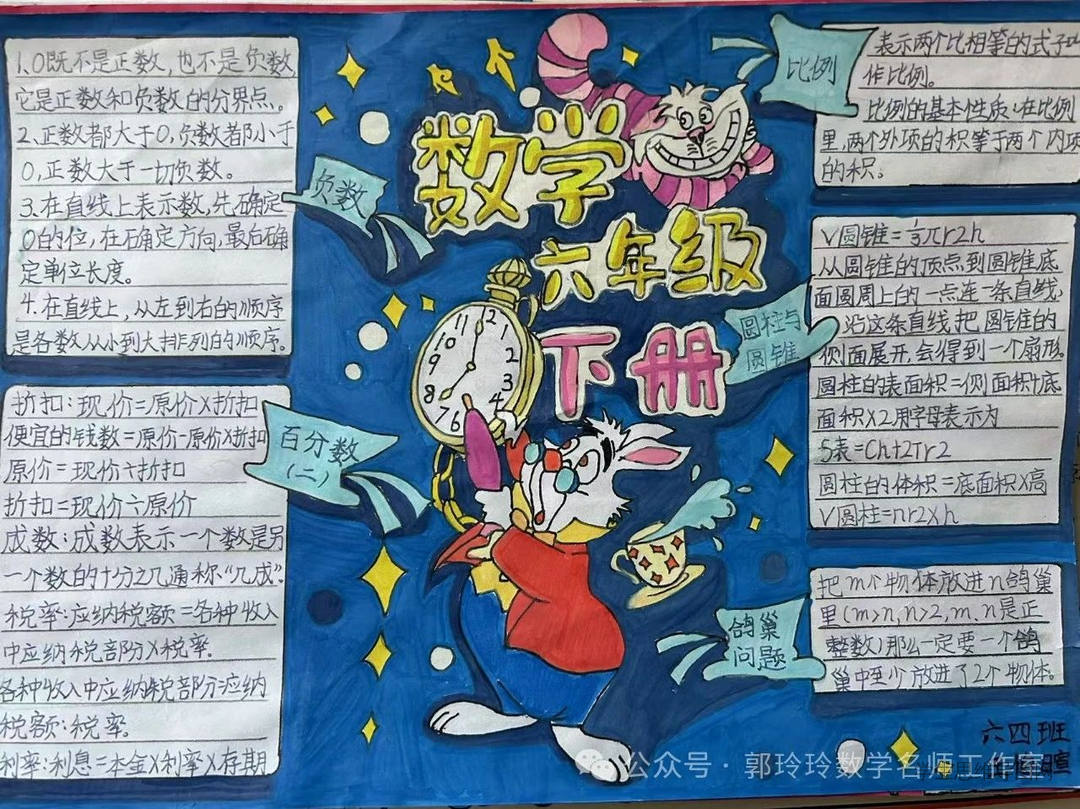 数学
六年级
下册
1.0既不是正数,也不是负数
它是正数和负数的分界点。
2.正数都大于0,负数都小于
0,正数大于一切负数。
3.在直线上表示数,先确定
0的位,在确定方向,最后确
定单位长度。
4.在直线上,从左到右的顺序
是各数从小到大排列的顺序。
负数
折扣:现价=原价×折扣
便宜的钱数=原价-原价×折扣
原价=现价÷折扣
折扣=现价÷原价
成数:成数表示一个数是另
一个数的十分之几通称“几成”.
税率:应纳税额=各种收入
中应纳税部分×税率.
各种收入中应纳税部分:应纳
税额:税率.
利率:利息=本金×利率×存期
百分数
(二)
12
1
2
3
4
6
7
8
9
10
11
比例
表示两个比相等的式子叫
作比例。
比例的基本性质:在比例
里,两个外项的积等于两个内项
的积。
圆柱与
圆锥
V圆锥=1/3πr2h
从圆锥的顶点到圆锥底
面圆周上的一点连一条直线,
沿这条直线把圆锥的
侧面展开,会得到一个扇形.
圆柱的表面积=侧面积+底
面积×2用字母表示为
S表=Ch+2πr2
圆柱的体积=底面积×高
V圆柱=πr2×h
鸽巢
问题
把m个物体放进n鸽巢
里(m>n,n>2,m.n是正
整数)那么一定要一个鸽
巢中至少放进了2个物体.
六四班
公众号·郭玲玲数学名师工作室